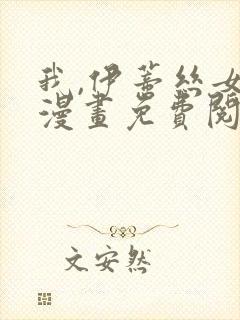 我,伊蒂丝女
漫畫免費閱
文安然